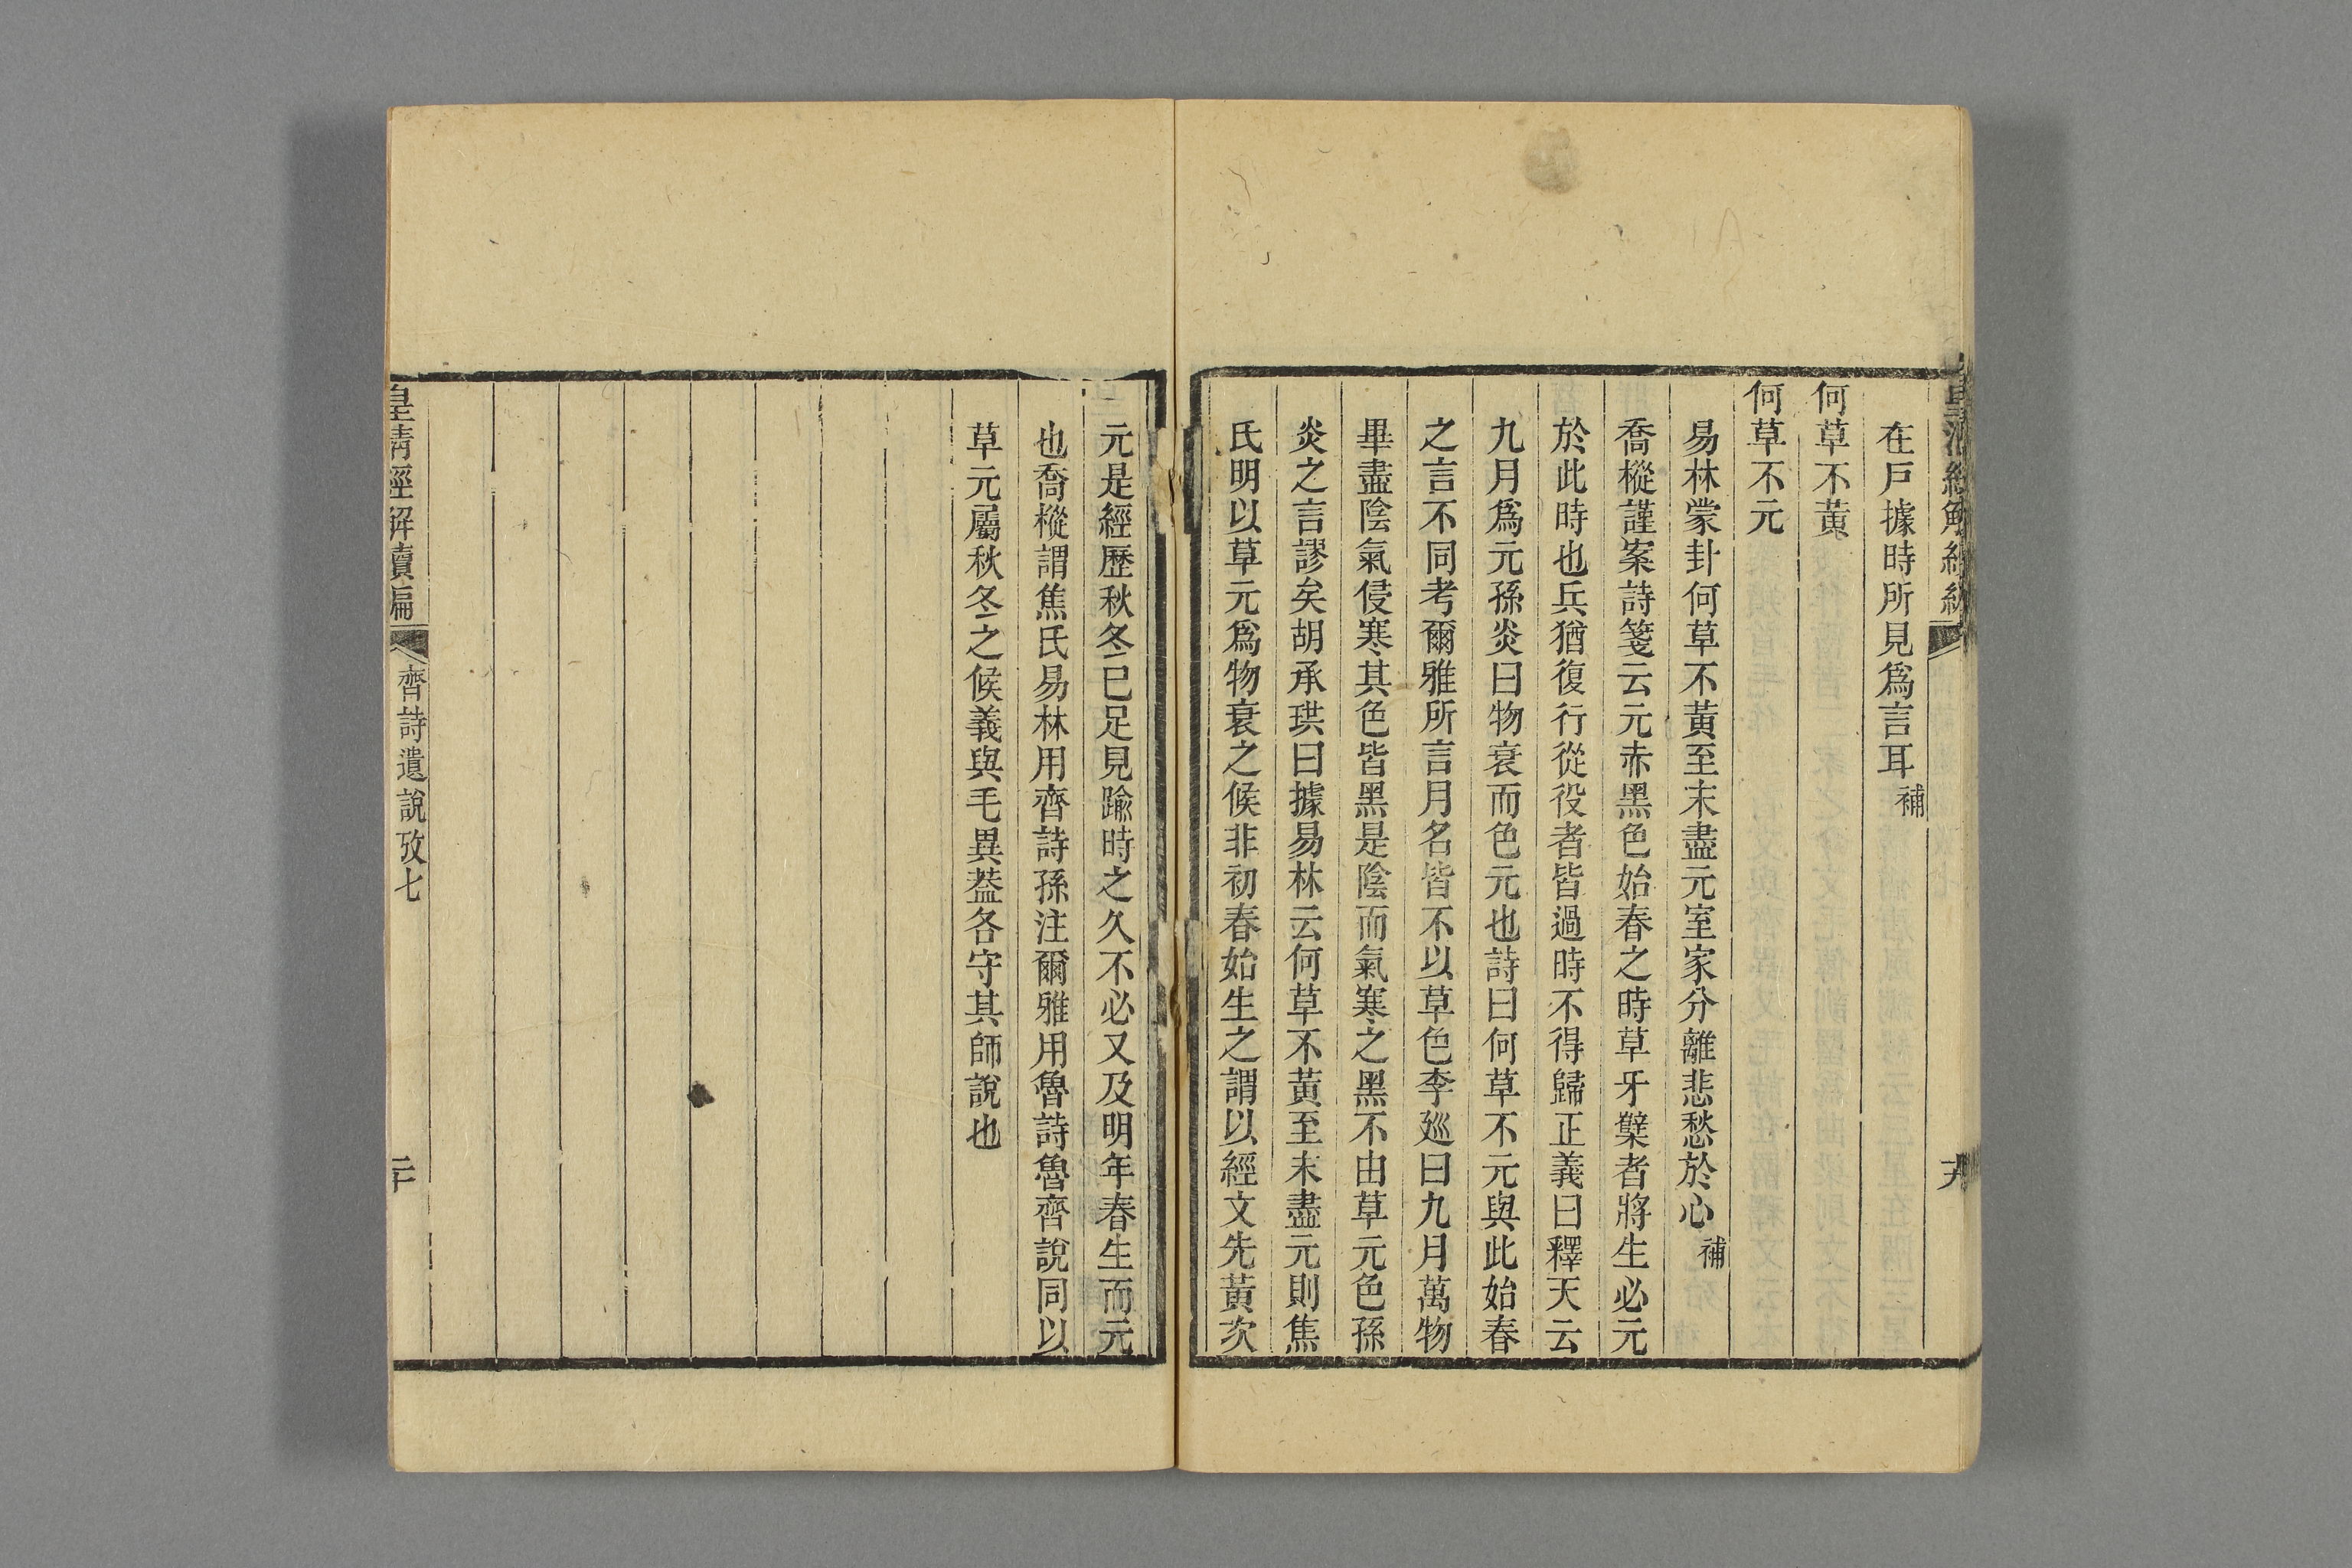 在戶據時所見爲言耳補
何草不黃
何草不元
易林蒙卦何草不黃至末盡元室家分離悲愁於心補
喬樅謹案詩箋云元赤黑色始春之時草牙櫱者將生必元
於此時也兵猶復行從役者皆過時不得歸正義曰釋天云
九月爲元孫炎曰物衰而色元也詩曰何草不元與此始春
之言不同考爾雅所言月名皆不以草色李廵曰九月萬物
畢盡陰氣侵寒其色皆黑是陰而氣寒之黑不由草元色孫
炎之言謬矣胡承珙曰據易林云何草不黃至末盡元則焦
氏明以草元爲物衰之候非初春始生之謂以經文先黃次
元是經歷秋冬已足見踰時之久不必又及明年春生而元
也喬樅謂焦氏易林用齊詩孫注爾雅用魯詩魯齊說同以
草元屬秋冬之候義與毛異葢各守其師說也
皇清經解續編 齊詩遺說攷七 二十